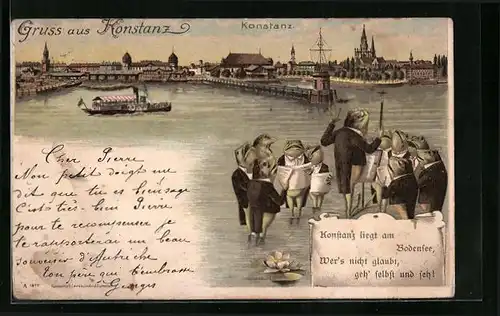 Gruss aus Konstanz
Konstanz.
Cher Pierre
Mon petit doigt me
dit que tu es bien sage
C'est très-bien Pierre
pour te recompenser je
te rapporterai un beau
souvenir d'Autriche
ton père qui t'embrasse
Georges
Konstanz liegt am
Bodensee,
Wer's nicht glaubt,
geh' selbst und seh!